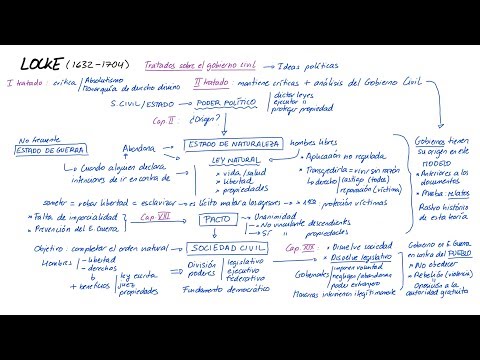 LOCKE (1632-1704) Tratados sobre el gobierno civil → Ideas políticas
I tratado: crítica Absolutismo
Monarquía de derecho divino
II tratado: mantiene críticas + análisis del Gobierno Civil
S. CIVIL/ESTADO → PODER POLÍTICO
dictar leyes
ejecutar
proteger propiedad
Cap. II: ¿Origen?
No frecuente
ESTADO DE GUERRA
Abandona
ESTADO DE NATURALEZA
hombres libres
Cuando alguien declara
intenciones de ir en contra de
LEY NATURAL
* vida/salud
* libertad
* propiedades
* Aplicación no regulada
* Transgredirla = vivir sin razón
derecho castigo (todos)
reparación (víctima)
Gobiernos tienen
su origen en este
MODELO
* Anteriores a los
documentos
* Prueba: relatos
Rastro histórico
de esta teoría
someter = robar libertad = esclavizar → es lícito matar a los
protección víctimas
* Falta de imparcialidad
* Prevención del E. Guerra
Cap. VIII
PACTO
* Unanimidad
* No vinculante descendientes
* Sí " propiedades
Objetivo: completar el orden natural
SOCIEDAD CIVIL
Cap. XIX
* Disuelve sociedad
* Disuelve legislativo
Hombres
- libertad
- derechos
+ beneficios
ley escrita
juez
propiedades
División
poderes
legislativo
ejecutivo
federativo
Fundamento democrático
Gobernantes
imponen voluntad
negligen/abandonan
poder extranjero
Maneras intervienen ilegítimamente
Gobierno en E. Guerra
en contra del PUEBLO
* No obedecer
* Rebelión (violencia)
Oposición a la
autoridad gratuita